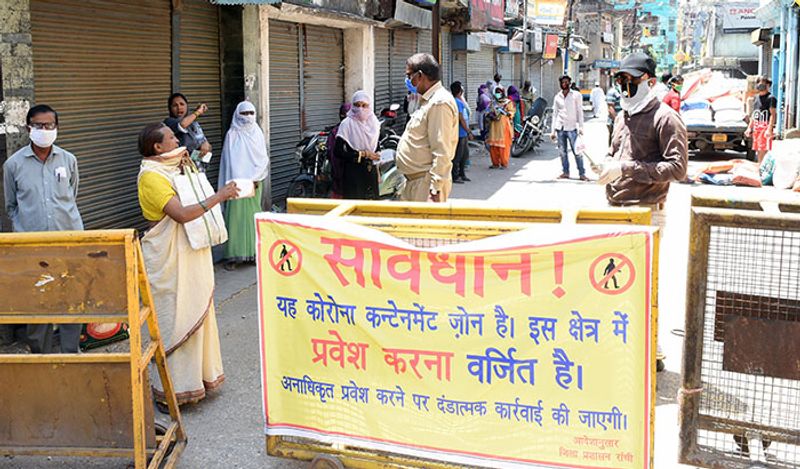 सावधान !
यह कोरोना कन्टेनमेंट ज़ोन है। इस क्षेत्र में
प्रवेश करना वर्जित है।
अनाधिकृत प्रवेश करने पर दंडात्मक कार्रवाई की जाएगी।
आदेशानुसार
जिला प्रशासन रांची